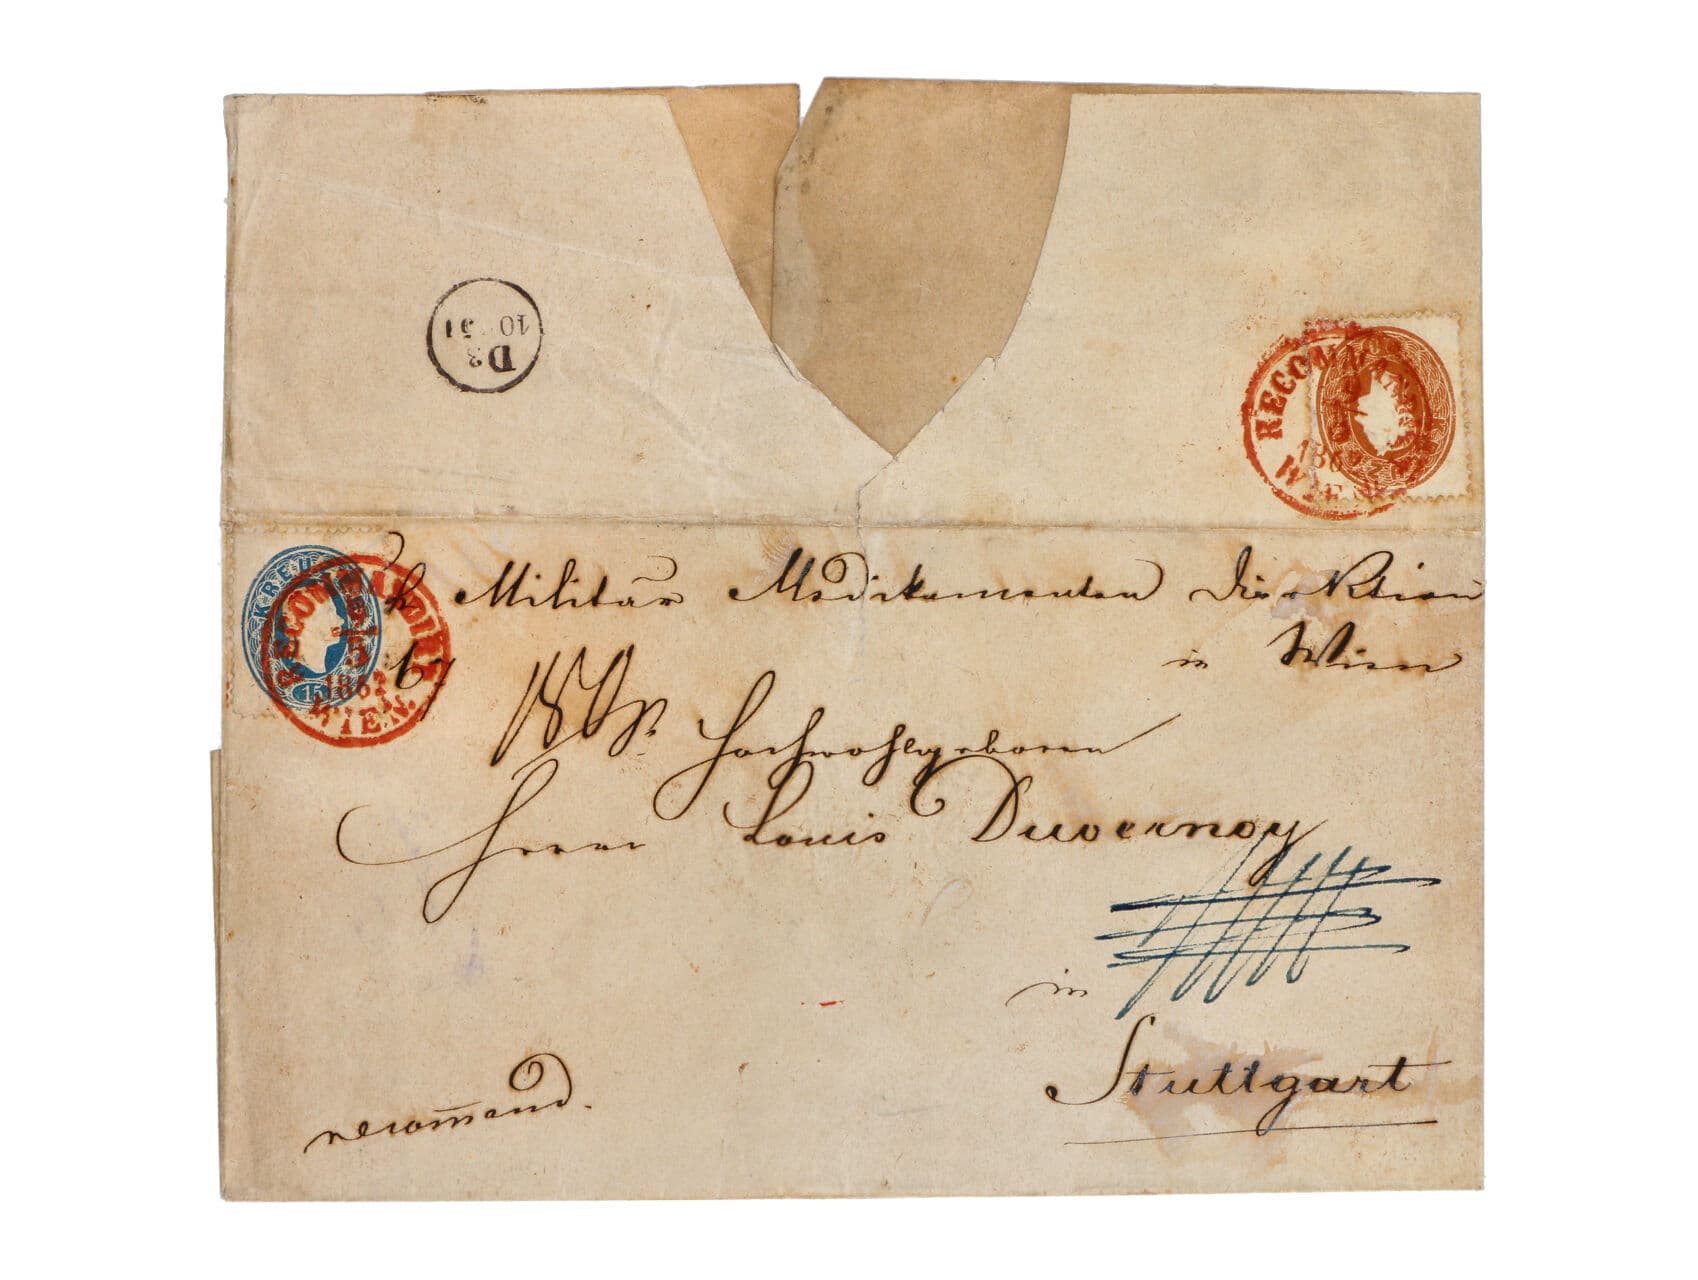 D3
10 51
RECOMMANDIRT
1862
WIEN
KREUZER
15
RECOMMANDIRT
5
1862
WIEN.
k Militär Medikamenten Direktion
in Wien
67
Hochwohlgeboren
Herrn Louis Duvernoy
in
Stuttgart
recom̄and.